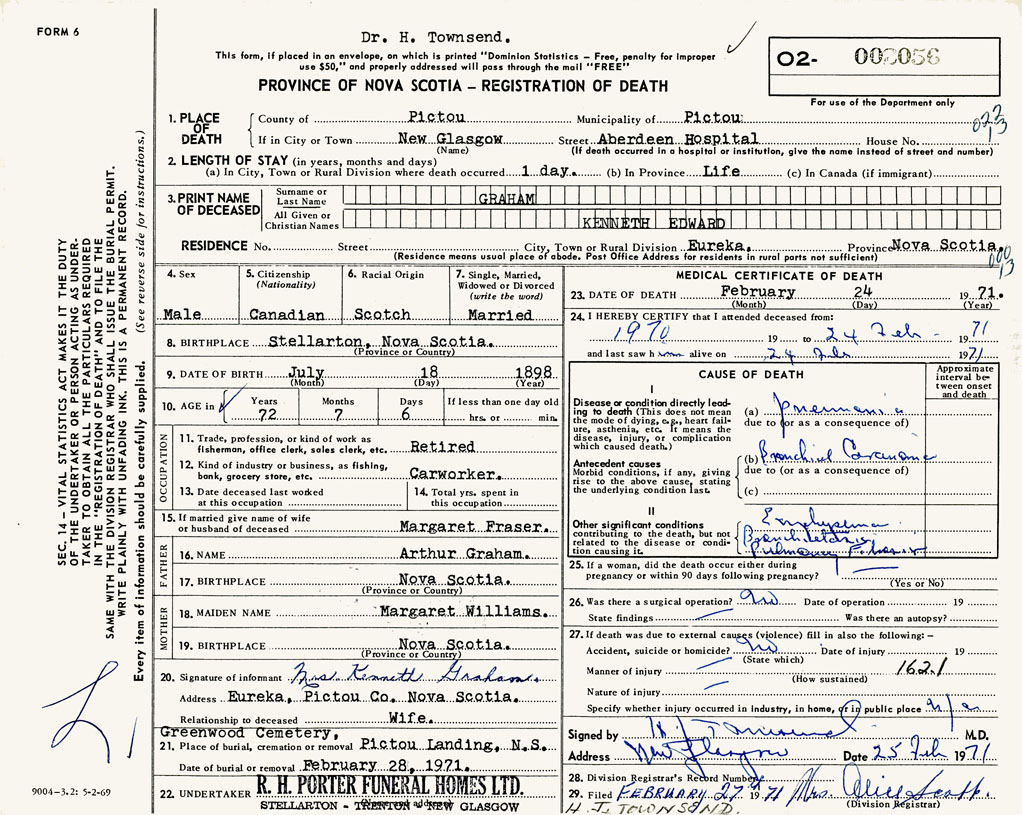 FORM 6
Dr. H. Townsend.
This form, if placed in an envelope, on which is printed "Dominion Statistics – Free, penalty for improper
use $50," and properly addressed will pass through the mail "FREE"
PROVINCE OF NOVA SCOTIA – REGISTRATION OF DEATH
02- 002056
For use of the Department only
1. PLACE OF DEATH
County of Pictou Municipality of Pictou
If in City or Town New Glasgow Street Aberdeen Hospital House No.
(Name) (If death occurred in a hospital or institution, give the name instead of street and number)
2. LENGTH OF STAY (in years, months and days)
(a) In City, Town or Rural Division where death occurred 1 day. (b) In Province Life (c) In Canada (if immigrant)
3. PRINT NAME OF DECEASED
Surname or Last Name GRAHAM
All Given or Christian Names KENNETH EDWARD
RESIDENCE No. Street City, Town or Rural Division Eureka, Province Nova Scotia.
(Residence means usual place of abode. Post Office Address for residents in rural parts not sufficient)
4. Sex
Male
5. Citizenship (Nationality)
Canadian
6. Racial Origin
Scotch
7. Single, Married, Widowed or Divorced (write the word)
Married
8. BIRTHPLACE Stellarton, Nova Scotia.
(Province or Country)
9. DATE OF BIRTH July 18 1898
(Month) (Day) (Year)
10. AGE in Years Months Days If less than one day old
72 7 6 hrs. or min.
OCCUPATION
11. Trade, profession, or kind of work as
fisherman, office clerk, sales clerk, etc. Retired
12. Kind of industry or business, as fishing,
bank, grocery store, etc. Carworker.
13. Date deceased last worked at this occupation
14. Total yrs. spent in this occupation
15. If married give name of wife
or husband of deceased Margaret Fraser.
FATHER
16. NAME Arthur Graham.
17. BIRTHPLACE Nova Scotia.
(Province or Country)
MOTHER
18. MAIDEN NAME Margaret Williams.
19. BIRTHPLACE Nova Scotia.
(Province or Country)
20. Signature of informant Mrs Kenneth Graham.
Address Eureka, Pictou Co. Nova Scotia.
Relationship to deceased Wife.
Greenwood Cemetery,
21. Place of burial, cremation or removal Pictou Landing, N.S.
Date of burial or removal February 28, 1971.
22. UNDERTAKER R. H. PORTER FUNERAL HOMES LTD.
STELLARTON - TRENTON - NEW GLASGOW
MEDICAL CERTIFICATE OF DEATH
23. DATE OF DEATH February 24 1971.
(Month) (Day) (Year)
24. I HEREBY CERTIFY that I attended deceased from:
1970 19 to 24 Feb - 1971
and last saw him alive on 24 Feb 1971
CAUSE OF DEATH
Approximate interval between onset and death
I
Disease or condition directly leading to death (This does not mean the mode of dying, e.g., heart failure, asthenia, etc. It means the disease, injury, or complication which caused death.)
(a) Pneumonia
due to (or as a consequence of)
Antecedent causes
Morbid conditions, if any, giving rise to the above cause, stating the underlying condition last.
(b) Bronchial Carcinoma
due to (or as a consequence of)
(c)
II
Other significant conditions contributing to the death, but not related to the disease or condition causing it.
Emphysema
Bronchiectasis
Pulmonary Fibrosis
25. If a woman, did the death occur either during
pregnancy or within 90 days following pregnancy?
(Yes or No)
26. Was there a surgical operation? No Date of operation 19
State findings Was there an autopsy?
27. If death was due to external causes (violence) fill in also the following: –
Accident, suicide or homicide? No Date of injury 19
(State which)
Manner of injury 162.1
(How sustained)
Nature of injury
Specify whether injury occurred in industry, in home, or in public place n/a
Signed by H. J. Townsend M.D.
Address New Glasgow Date 25 Feb 1971
28. Division Registrar's Record Number
29. Filed FEBRUARY 27 1971 Mrs. Alice Scott
(Division Registrar)
H. J. TOWNSEND.
SEC. 14 – VITAL STATISTICS ACT MAKES IT THE DUTY
OF THE UNDERTAKER OR PERSON ACTING AS UNDER-
TAKER TO OBTAIN ALL THE PARTICULARS REQUIRED
IN THE "REGISTRATION OF DEATH" AND TO FILE THE
SAME WITH THE DIVISION REGISTRAR WHO SHALL ISSUE THE BURIAL PERMIT.
WRITE PLAINLY WITH UNFADING INK. THIS IS A PERMANENT RECORD.
Every item of information should be carefully supplied. (See reverse side for instructions.)
9004-3.2: 5-2-69